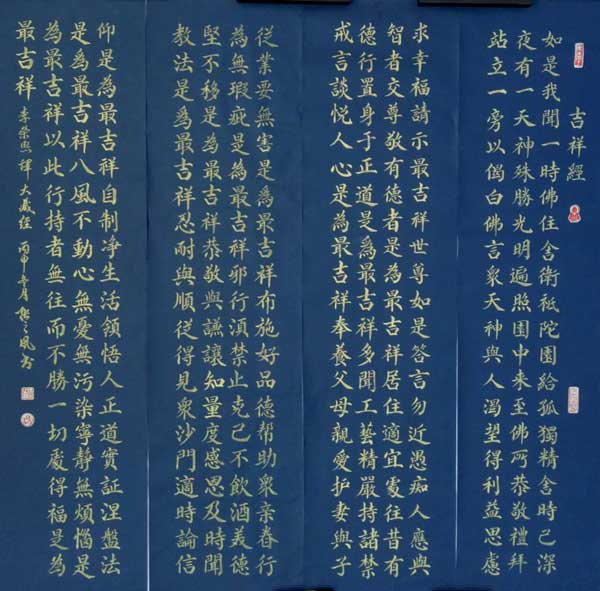 吉祥經
如是我聞一時佛住舍衛祇陀園給孤獨精舍時已深
夜有一天神殊勝光明遍照園中來至佛所恭敬禮拜
站立一旁以偈白佛言眾天神與人渴望得利益思慮
求幸福請示最吉祥世尊如是答言勿近愚痴人應與
智者交尊敬有德者是為最吉祥居住適宜處往昔有
德行置身于正道是為最吉祥多聞工藝精嚴持諸禁
戒言談悅人心是為最吉祥奉養父母親愛护妻與子
從業要無害是為最吉祥布施好品德帮助眾亲眷行
為無瑕疵是為最吉祥邪行須禁止克己不飲酒美德
堅不移是為最吉祥恭敬與謙讓知量度感恩及時聞
教法是為最吉祥忍耐與順從得見眾沙門適時論信
仰是為最吉祥自制净生活領悟人正道實証涅盤法
是為最吉祥八風不動心無憂無污染寧靜無煩惱是
為最吉祥以此行持者無往而不勝一切處得福是為
最吉祥 李榮熙譯 大藏經 丙申 月 風书